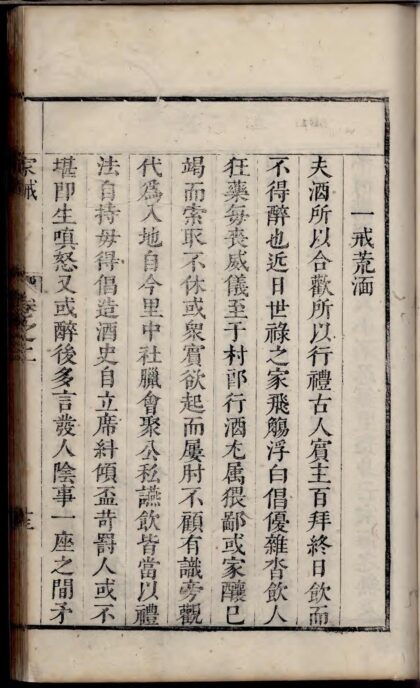 一戒荒湎
夫酒所以合歡所以行禮古人賓主百拜終日飲而
不得醉也近日世祿之家飛觴浮白倡優雜沓飲人
狂藥每喪威儀至于村鄙行酒尤属猥鄙或家釀已
竭而索取不休或衆賓欲起而屢肘不顧有識旁觀
代為入地自今里中社臘會聚公私讌飲皆當以禮
法自持毋得倡造酒史自立席糾傾盃苛罸人或不
堪即生嗔怒又或醉後多言發人陰事一座之間矛
家誡
卷之二